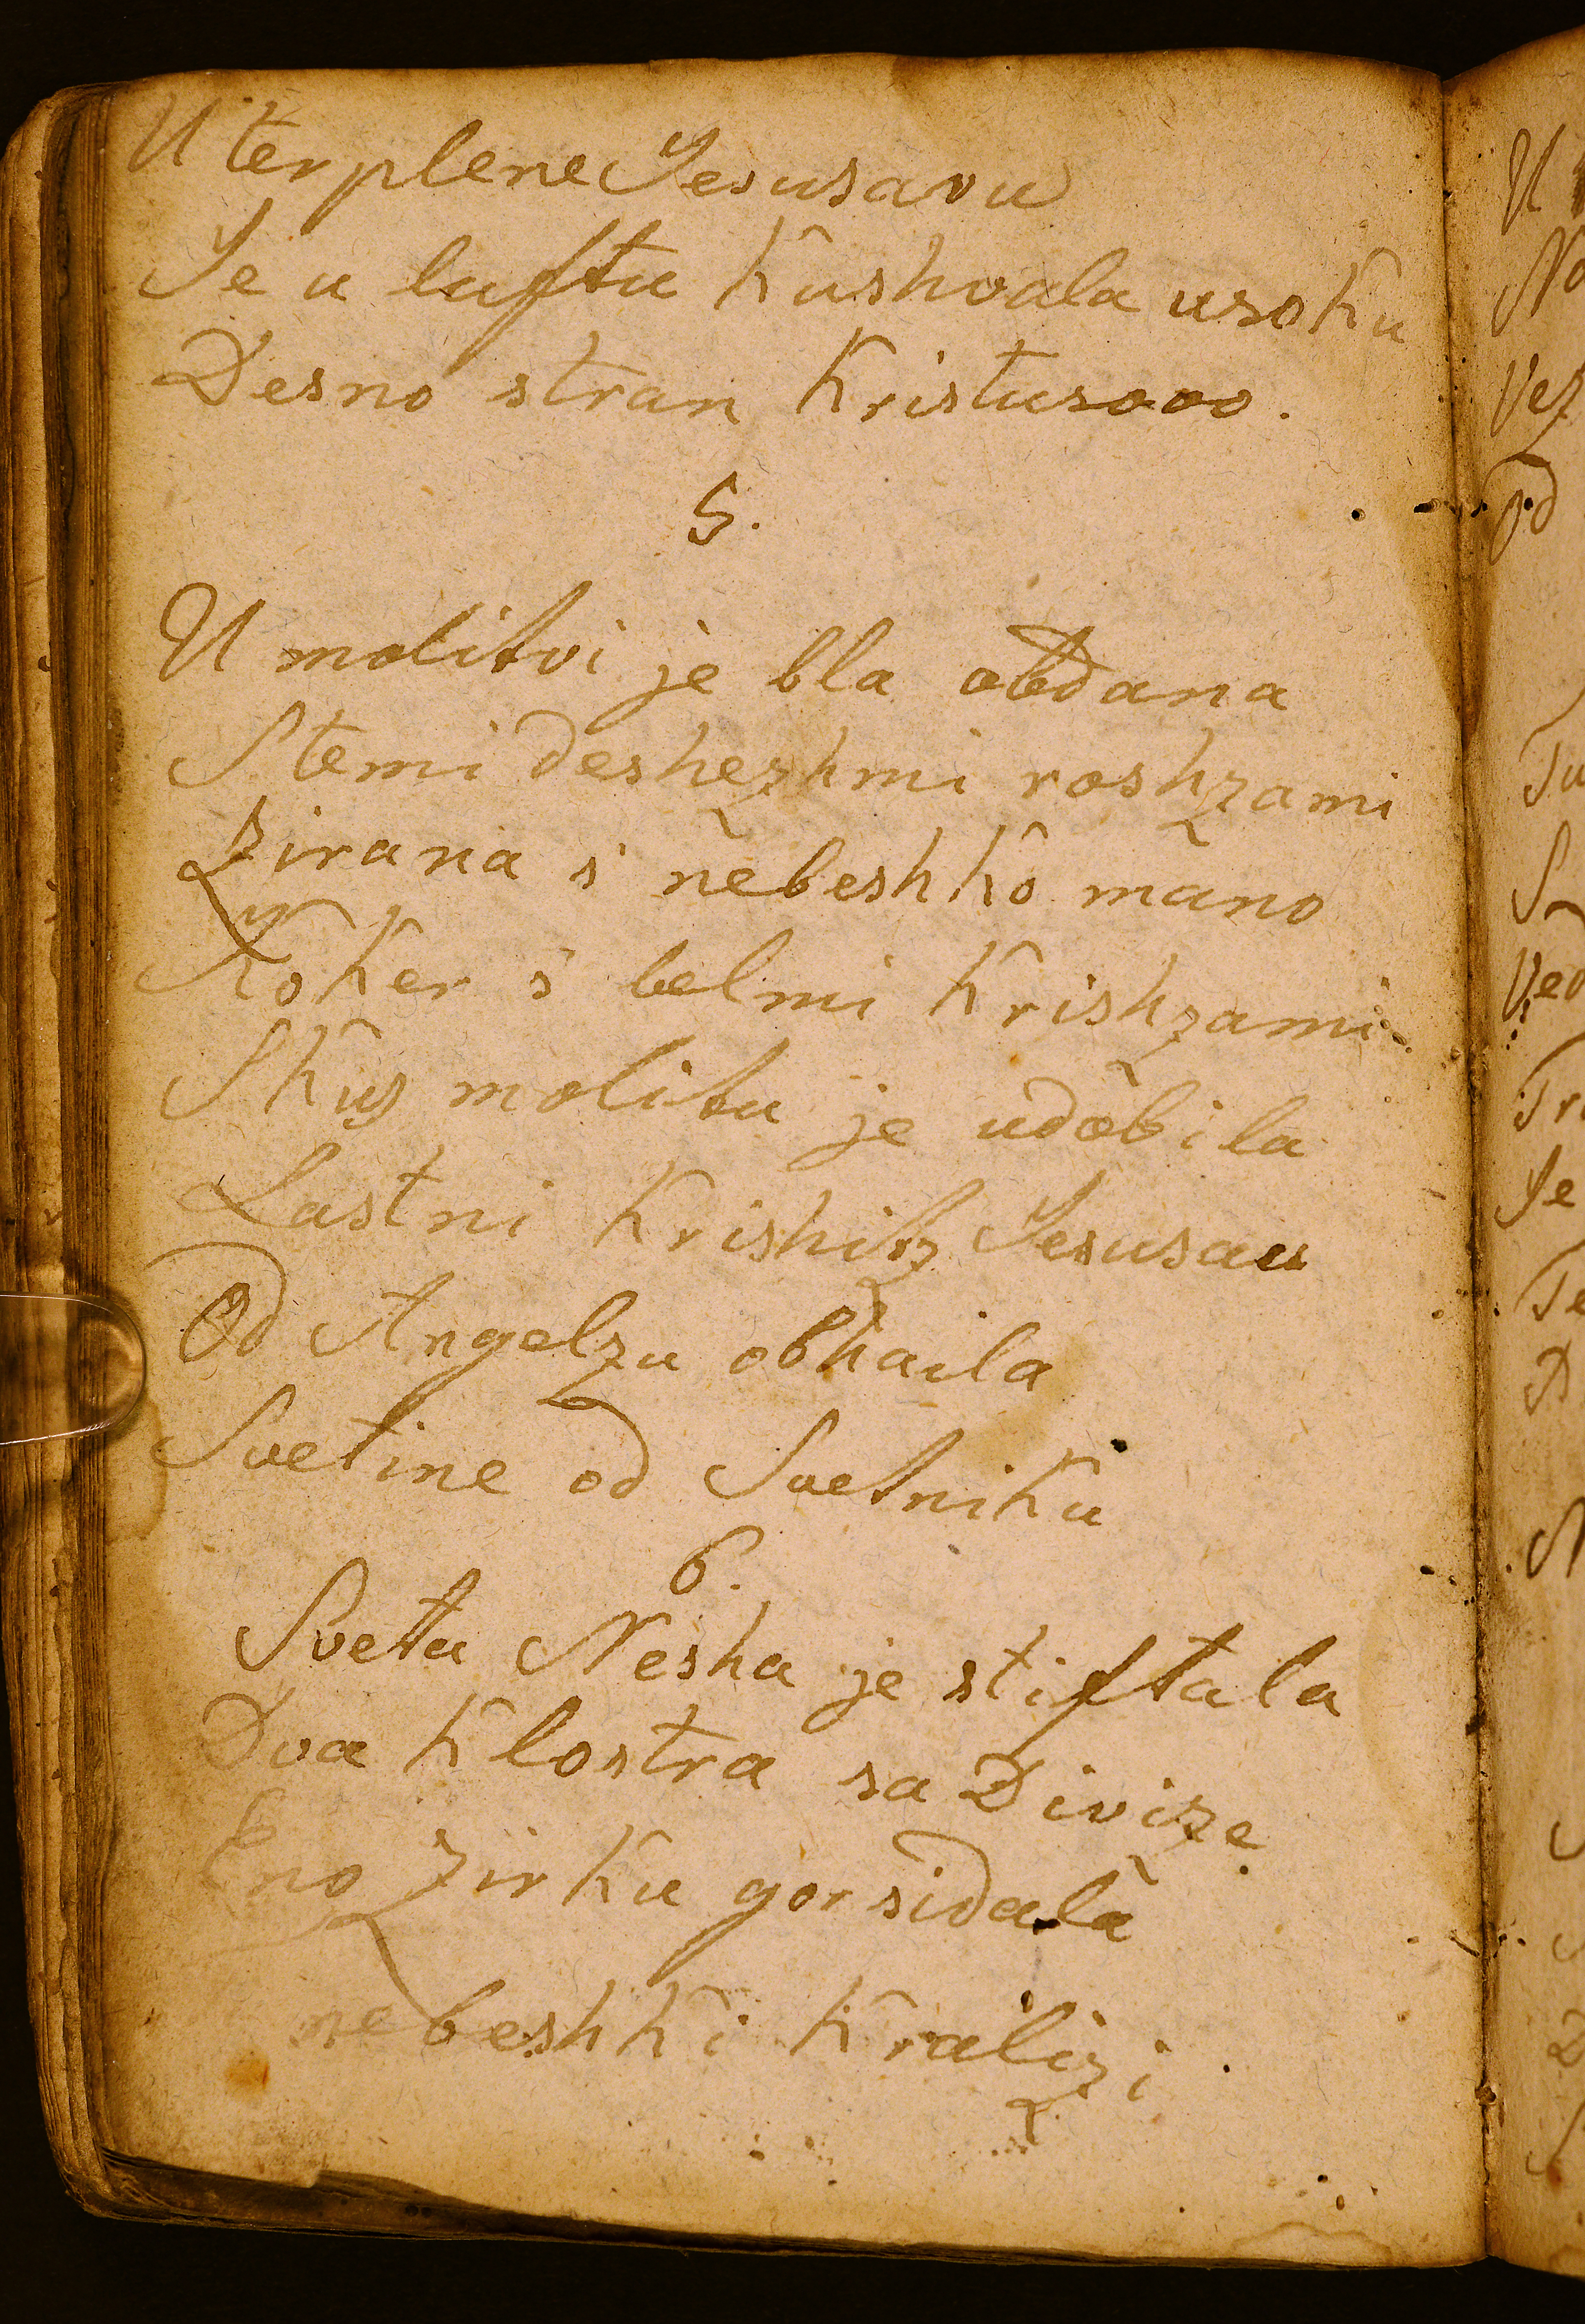 U terplene Jesusavu
Je u luftu kushvala usoku
Desno stran Kristusovo.
5.
U molitvi je bla obdana
S temi deshezhmi roshzami
Zirana s' nebeshko mano
Koker s' belmi krishzami.
Skus molitu je udobila
Lastni krishiz Jesusau
Od Angelzu obhaila
Svetine od Svetniku
6.
Sveta Nesha je stiftala
Dva klostra sa Divize
Eno zirku gor sidala
nebeshki kralizi.
U
No
Vez
Od
Tu
S
Ved
Tr
Je
Te
D
N